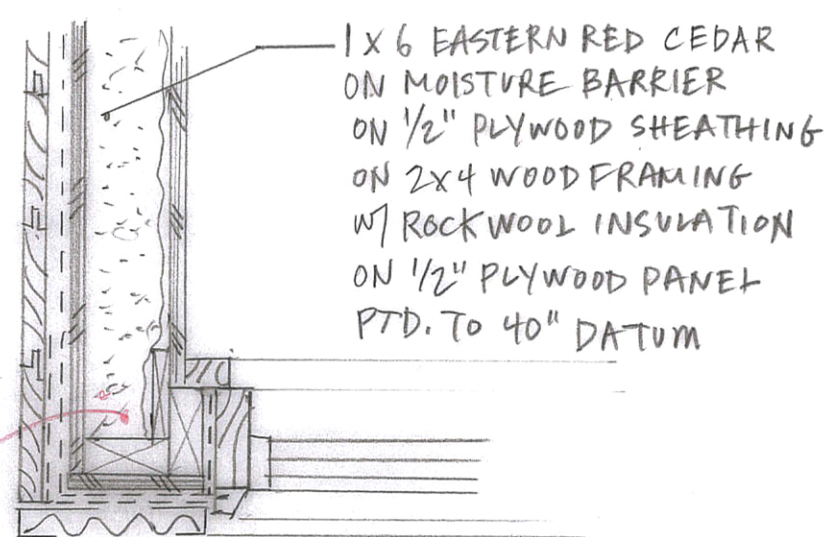 1 X 6 EASTERN RED CEDAR
ON MOISTURE BARRIER
ON 1/2" PLYWOOD SHEATHING
ON 2X4 WOOD FRAMING
W/ ROCKWOOL INSULATION
ON 1/2" PLYWOOD PANEL
PTD. TO 40" DATUM